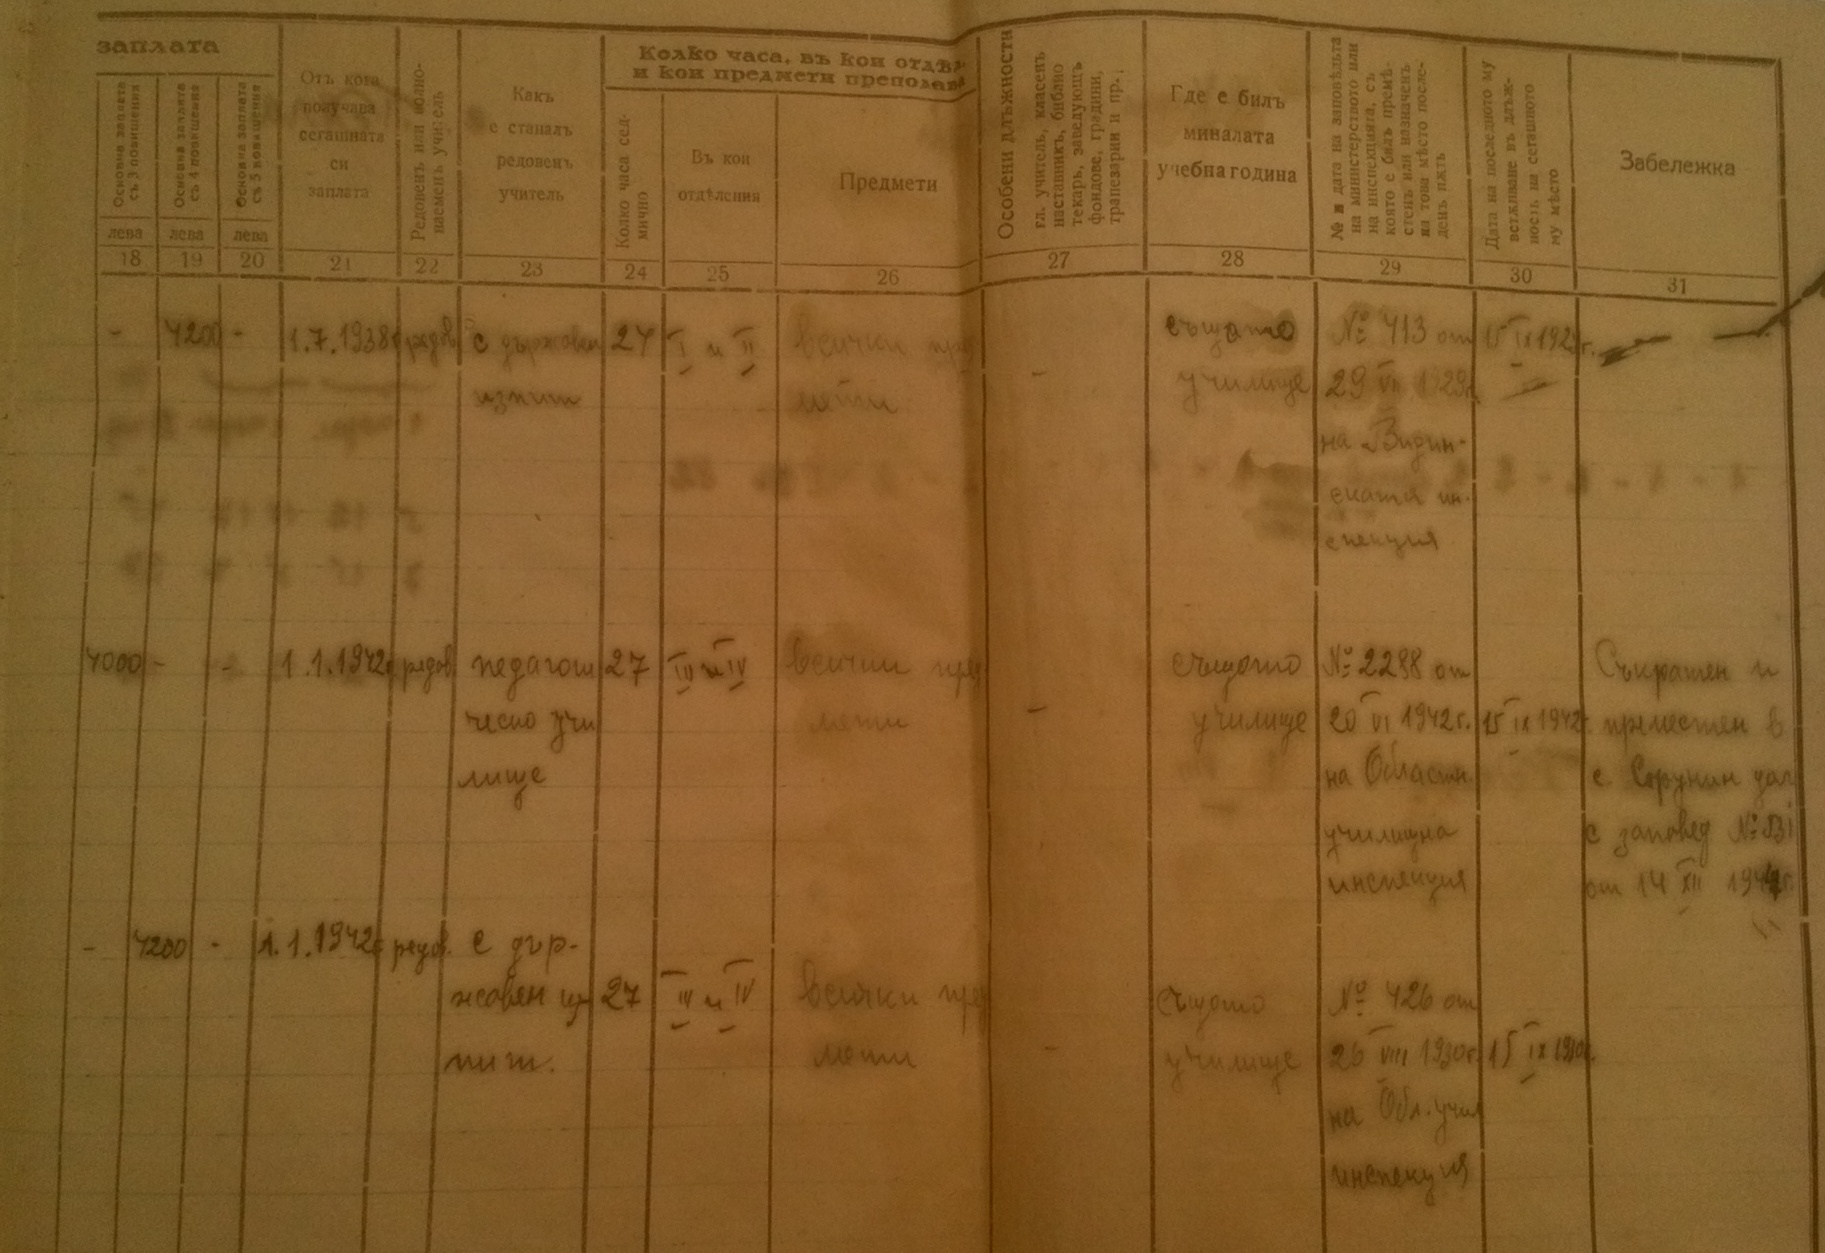 заплата
Колко часа, въ кои отдѣл
и кои предмети препод
Основна заплата
съ 3 повишения
Основна заплата
съ 4 повишения
Основна заплата
съ 5 повишения
лева
лева
лева
Отъ кога
получава
сегашната
си
заплата
Редовенъ или волно-
наеменъ учитель
Какъ
е станалъ
редовенъ
учитель
Колко часа сед-
мично
Въ кои
отдѣления
Предмети
Особени длъжности
гл. учитель, класенъ
наставникъ, библио
текарь, заведующъ
фондове, градини,
трапезарии и пр.
Где е билъ
миналата
учебна година
№ и дата на заповѣдьта
на министерството или
на инспекцията, съ
която е билъ премѣ-
стенъ или назначенъ
на това мѣсто после-
денъ пѫть
Дата на последното му
встѫпване въ длъж-
ность на сегашното
му мѣсто
Забележка
18 19 20 21 22 23 24 25 26 27 28 29 30 31
- 4200 - 1.7.1938г редов с държавен 27 I и II всички пред - същото № 413 от 15 IX 1929г.
изпит мети училище 29 VII 1929г.
на Видин-
ската ин-
спекция
4000 - - 1.1.1942г редов педагоги 27 III и IV всички пред същото № 2288 от Съкратен и
ческо учи мети - училище 20 VI 1942г. 15 IX 1942г. преместен в
лище на Областн. с.
училищна с заповед №
инспекция от 14 XII 1944г.
- 4200 - 1.1.1942г редов. с дър-
жавен из 27 III и IV всички пред същото № 426 от
пит. мети - училище 26 VIII 1930г. 15 IX 1930г.
на Обл. учил
инспекция